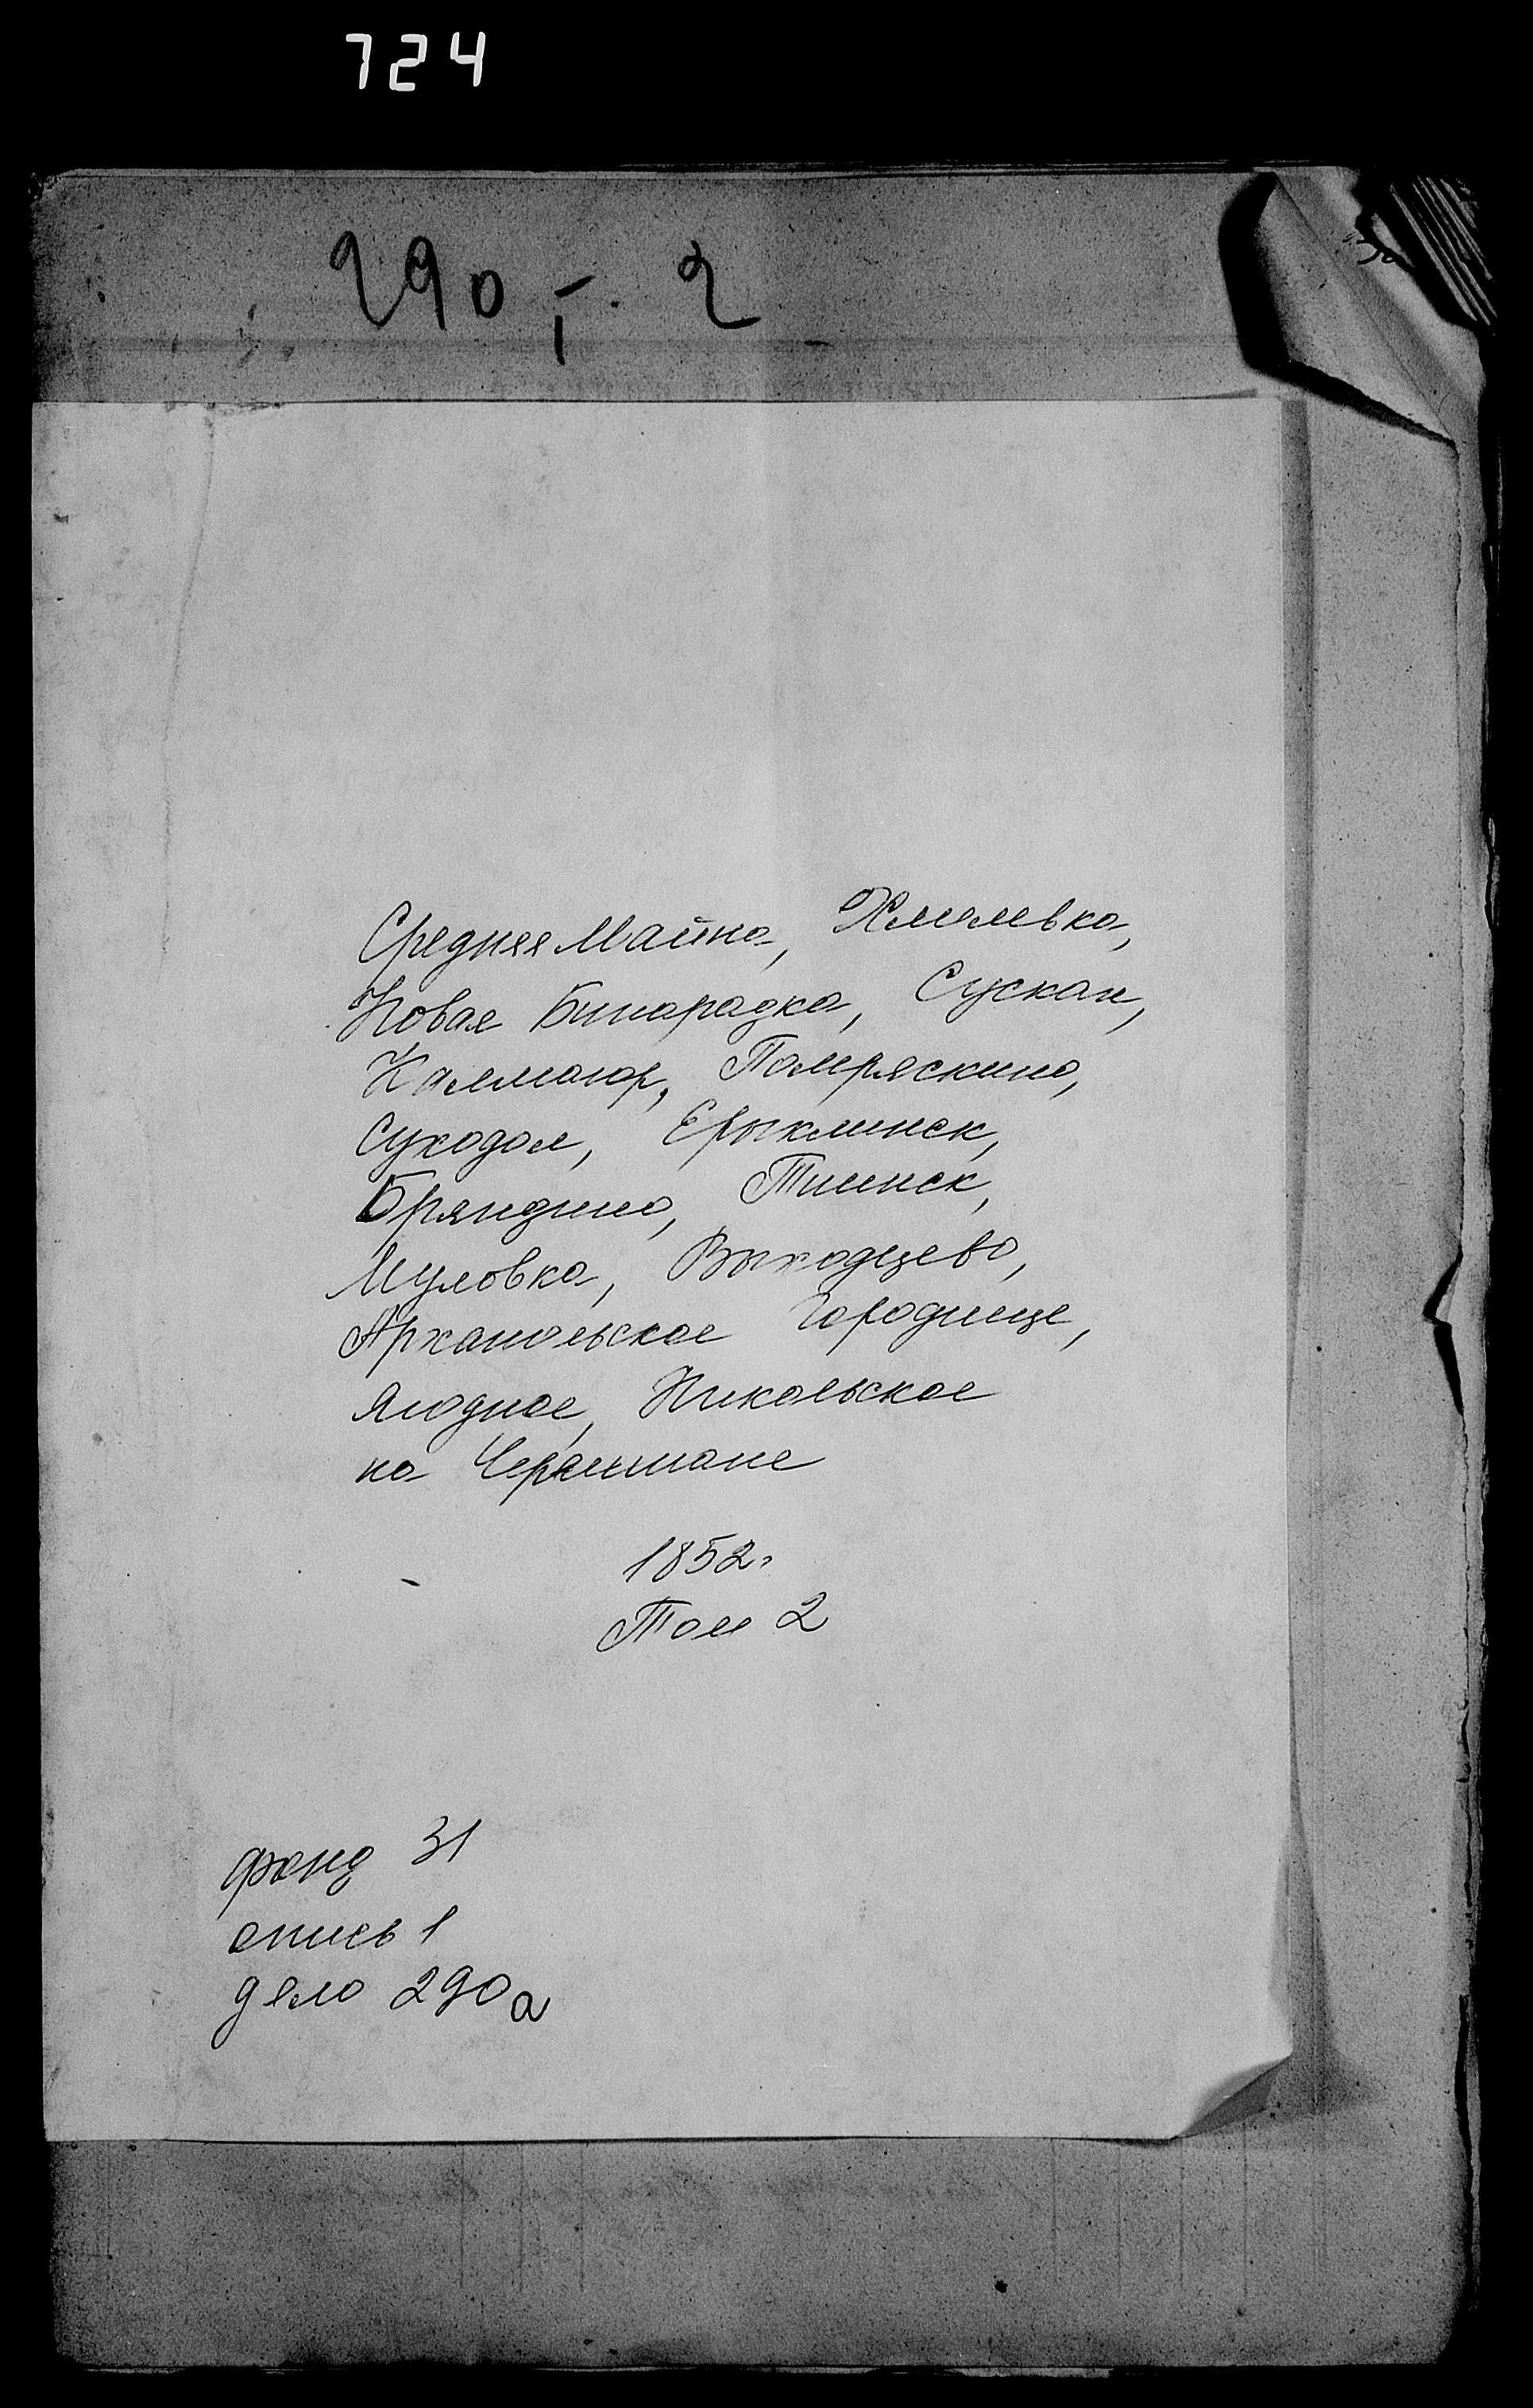 724
290, - 2
Средняя Майна, Хмелевка,
Новая Бинарадка, Сускан,
Каммаюр, Помряскино,
Суходол, Ерыклинск,
Бряндино, Тиинск,
Муловка, Выходцево,
Архангельское Городище,
Ягодное, Никольское
на Черемшане
1852г
Том 2
фонд 31
опись 1
дело 290а